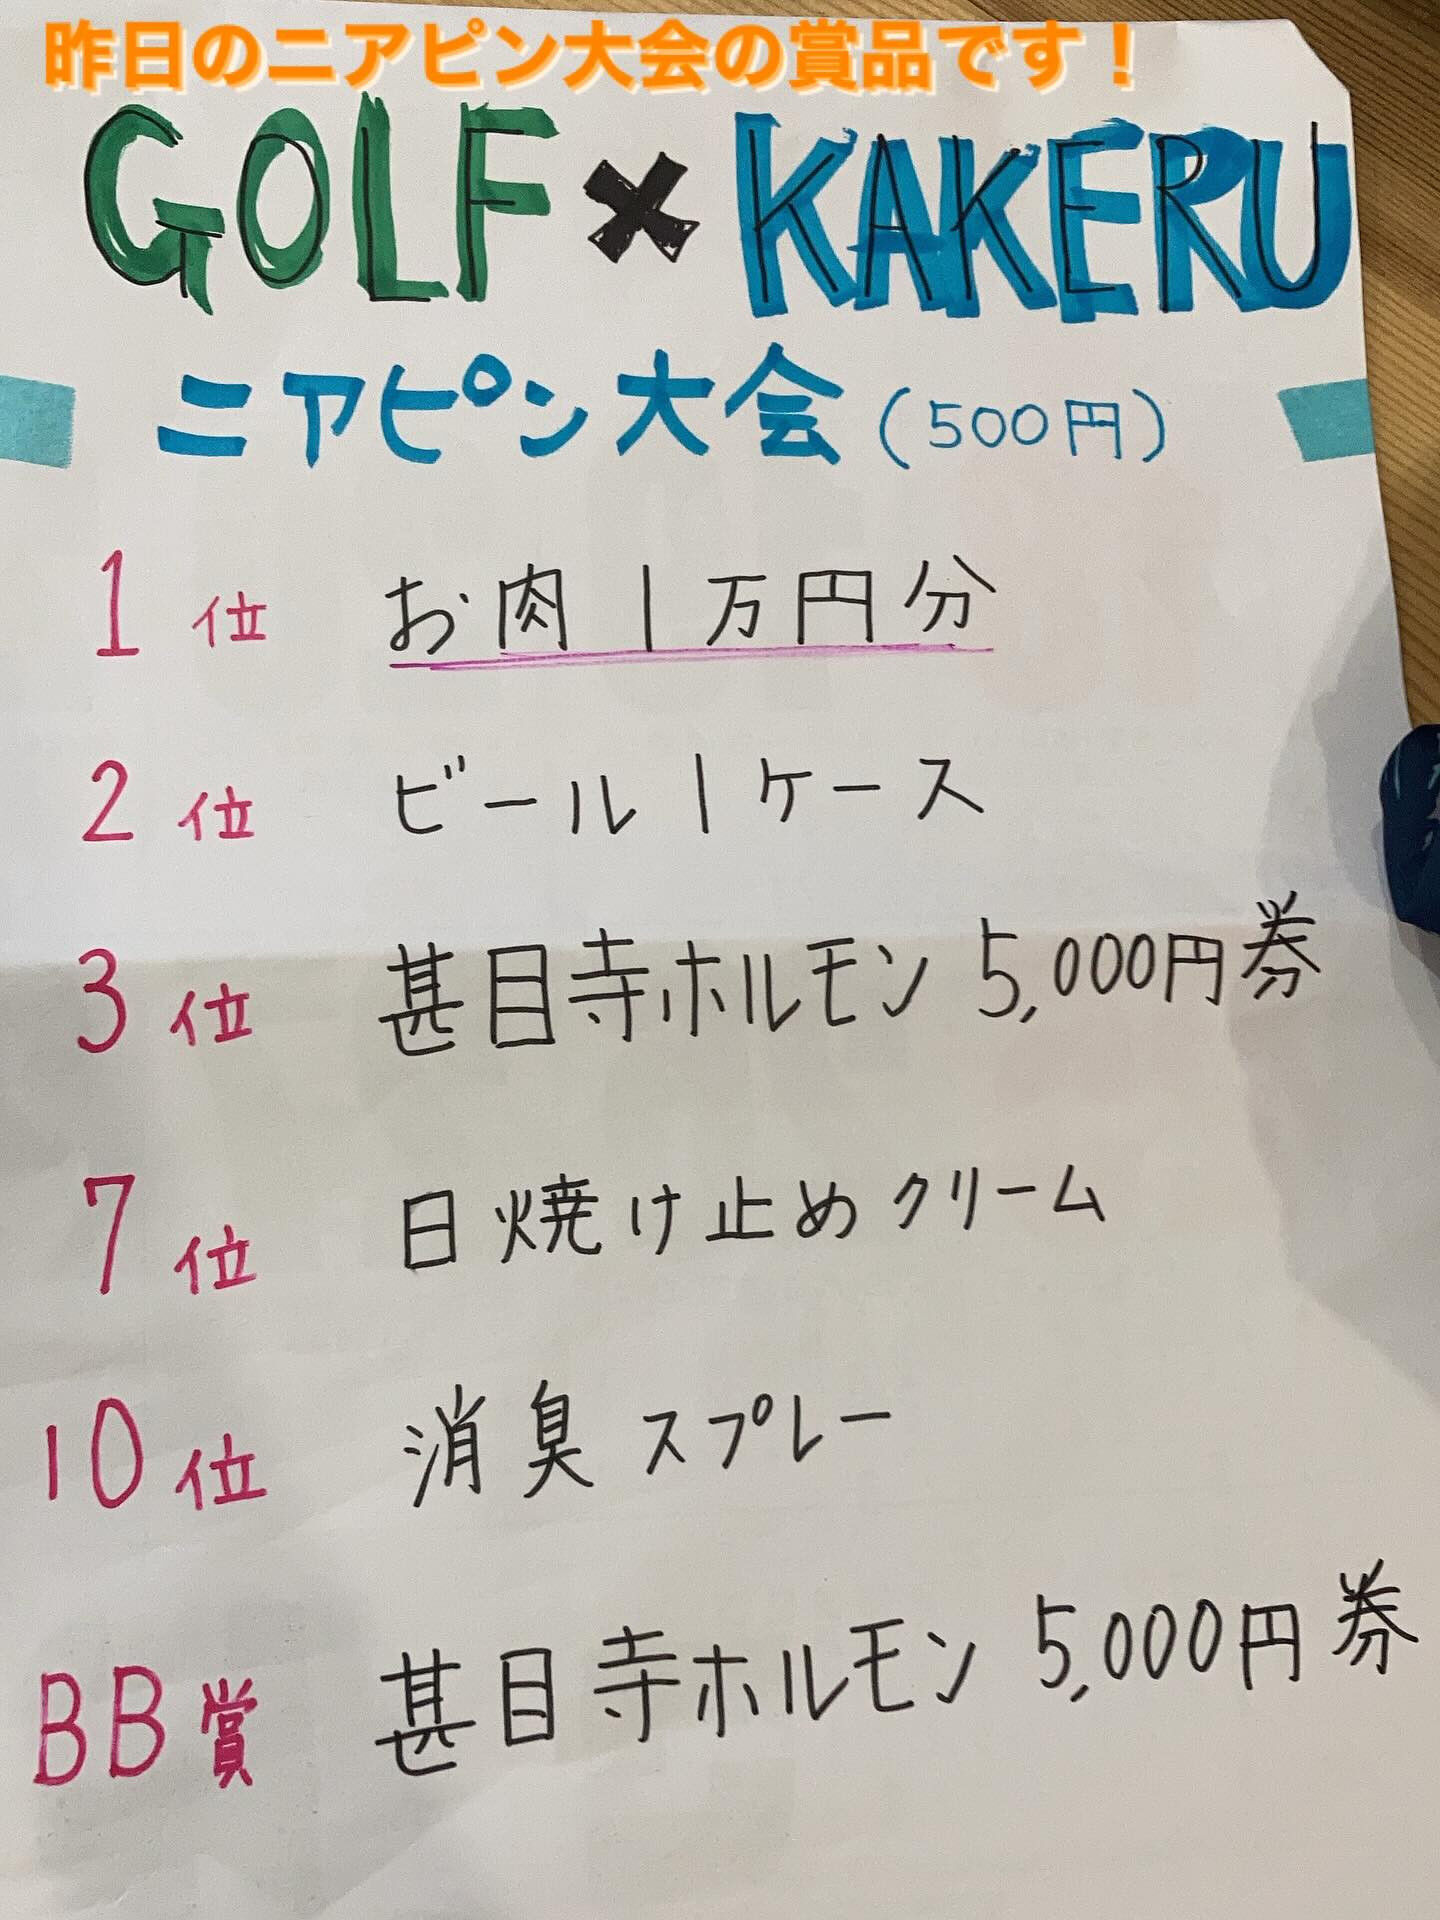 昨日のニアピン大会の賞品です！
GOLF×KAKERU
ニアピン大会(500円)
1位 お肉1万円分
2位 ビール1ケース
3位 甚目寺ホルモン 5,000円券
7位 日焼け止めクリーム
10位 消臭スプレー
BB賞 甚目寺ホルモン 5,000円券